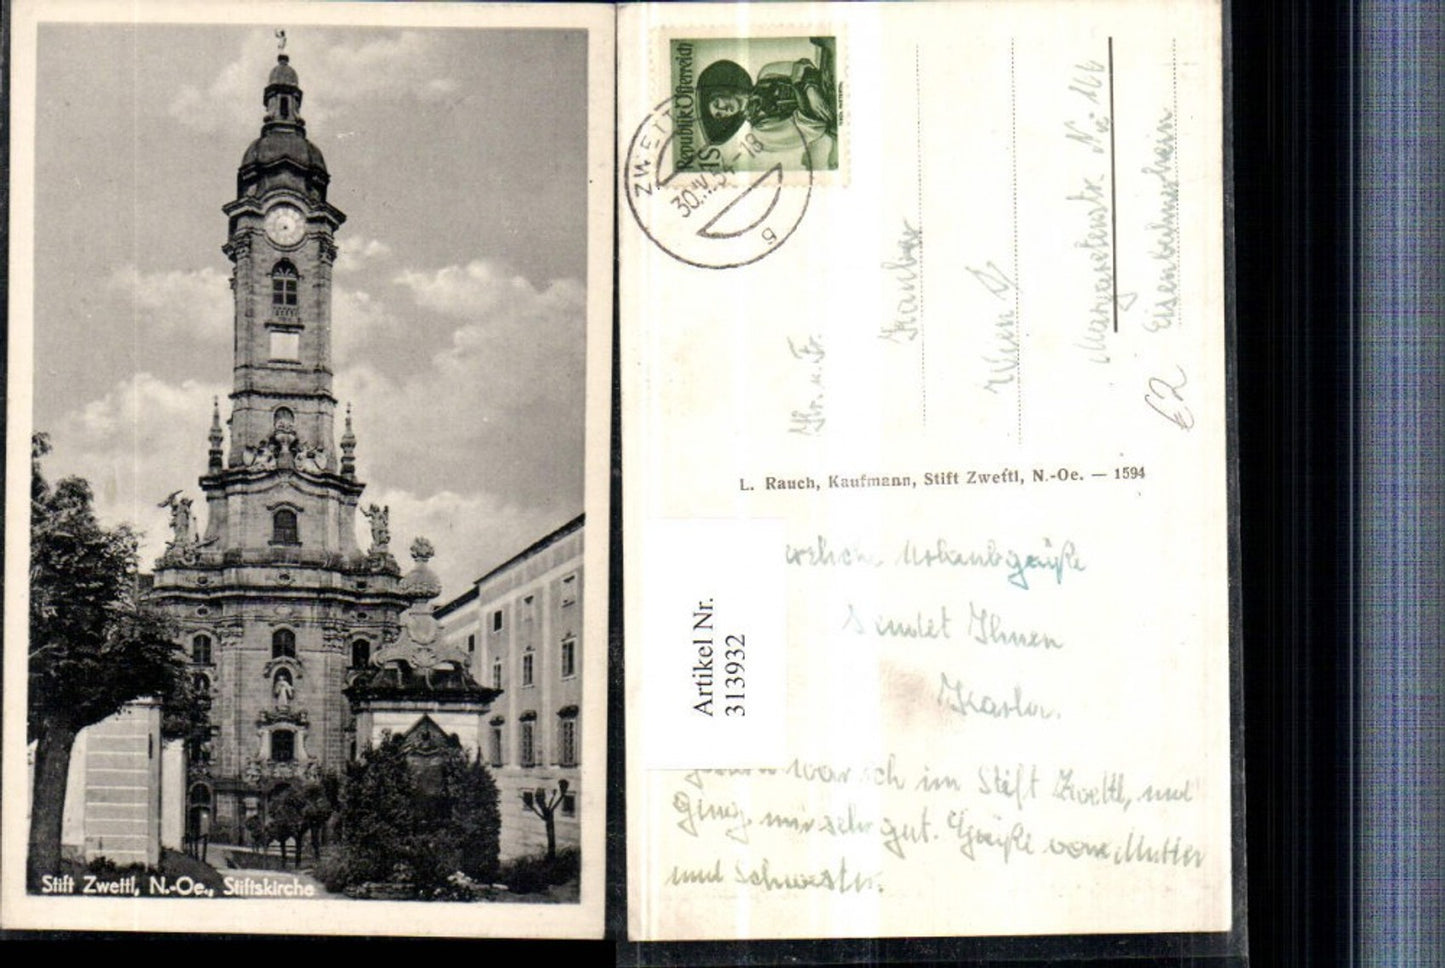 Stift Zwettl, N.-Oe., Stiftskirche
Republik Österreich
1S
ZWETT
30.V.54-18
Hr. u. Fr.
Wien V
Margaretenstr. Nr. 166
Eisenbahnerheim
€2
L. Rauch, Kaufmann, Stift Zwettl, N.-Oe. — 1594
Artikel Nr.
313932
sendet Ihnen
Karla.
war ich im Stift Zwettl, und
ging mir sehr gut. Grüße von Mutter
und Schwester.